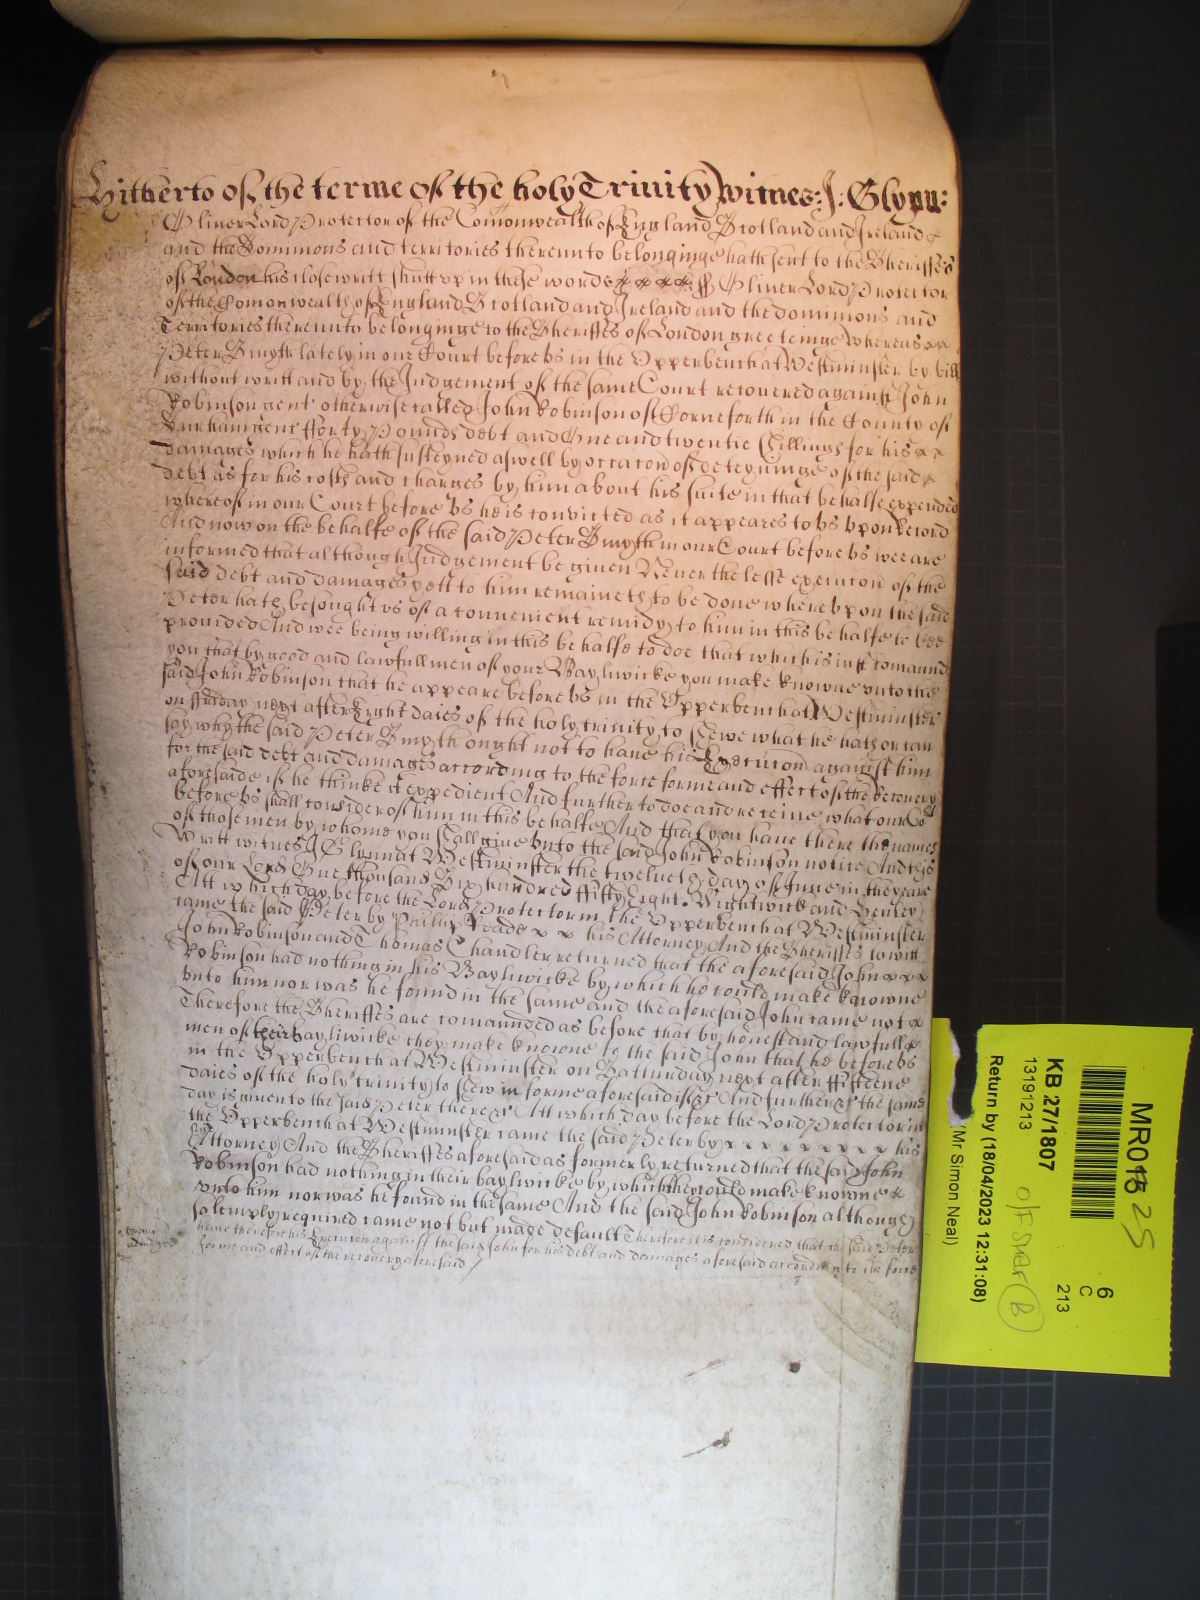 Hitherto of the terme of the holy Trinity Witnes: J: Glynn:
Oliver Lord Protector of the Comonwealth of England Scotland and Ireland
and the Dominions and territories thereunto belonginge hath sent to the Sheriffes
of London his close writt shutt up in these words ss Oliver Lord Protector
of the Comonwealth of England Scotland and Ireland and the dominions and
Territories thereunto belonginge to the Sheriffes of London greetinge Whereas
Peter Smyth lately in our Court before us in the Upperbench at Westminster by bill
without writt and by the Judgement of the same Court recovered against John
Robinson gent otherwise called John Robinson of Corneforth in the County of
Durham gent fforty Pounds debt and One and twentie Shillings for his
damages which he hath susteyned aswell by occacon of deteyninge of the said
debt as for his costs and charges by him about his suite in that behalfe expended
whereof in our Court before us he is convicted as it appeares to us upon Record
And now on the behalfe of the said Peter Smyth in our Court before us wee are
informed that although Judgement be given Neverthelesse execucon of the
said debt and damages yett to him remaineth to be done whereupon the said
Peter hath besought us of a convenient remidy to him in this behalfe to bee
provided And wee being willing in this behalfe to doe that which is just comannd
you that by good and lawfull men of your Bayliwicke you make knowne unto the
said John Robinson that he appeare before us in the Upperbench at Westminster
on ffriday next after Eight daies of the holy trinity to shewe what he hath or can
say why the said Peter Smyth ought not to have his Execucion against him
for the said debt and damages according to the force forme and effect of the Recovery
aforesaide if he thinke it expedient And further to doe and receive what our Cort
before us shall consider of him in this behalfe And that you have there the names
of those men by whome you shall give unto the said John Robinson notice And this
Writt witnes J Glynn at Westminster the twelueth day of June in the yeare
of our Lord One thousand Six hundred ffifty Eight. Wightwick and Henley
Att which day before the Lord Protector in the Upperbench at Westminster
came the said Peter by Phillip Reade his Attorney And the Sheriffes to witt
John Robinson and Thomas Chandler returned that the aforesaid John
Robinson had nothing in his Bayliwicke by which he could make knowne
unto him nor was he found in the same and the aforesaid John came not
Therefore the Sheriffes are comannded as before that by honest and lawfull
men of their bayliwicke they make knowne to the said John that he before us
in the Upperbench at Westminster on Satturday next after ffifteene
daies of the holy trinity to shew in forme aforesaid if &c And further &c the same
day is given to the said Peter there &c Att which day before the Lord Protector in
the Upperbench at Westminster came the said Peter by his
Attorney And the Sheriffes aforesaid as formerly returned that the said John
Robinson had nothing in their bayliwicke by which they could make knowne
unto him nor was he found in the same And the said John Robinson although
solemply required came not but made default Therefore it is considered that the said Peter
have therefore his Execucon against the said John for his debt and damages aforesaid according to the force
forme and effect of the recovery aforesaid
MR01 25
KB 27/1807
13191213
6
C
213
Return by (18/04/2023 12:31:08)
(Mr Simon Neal)
B